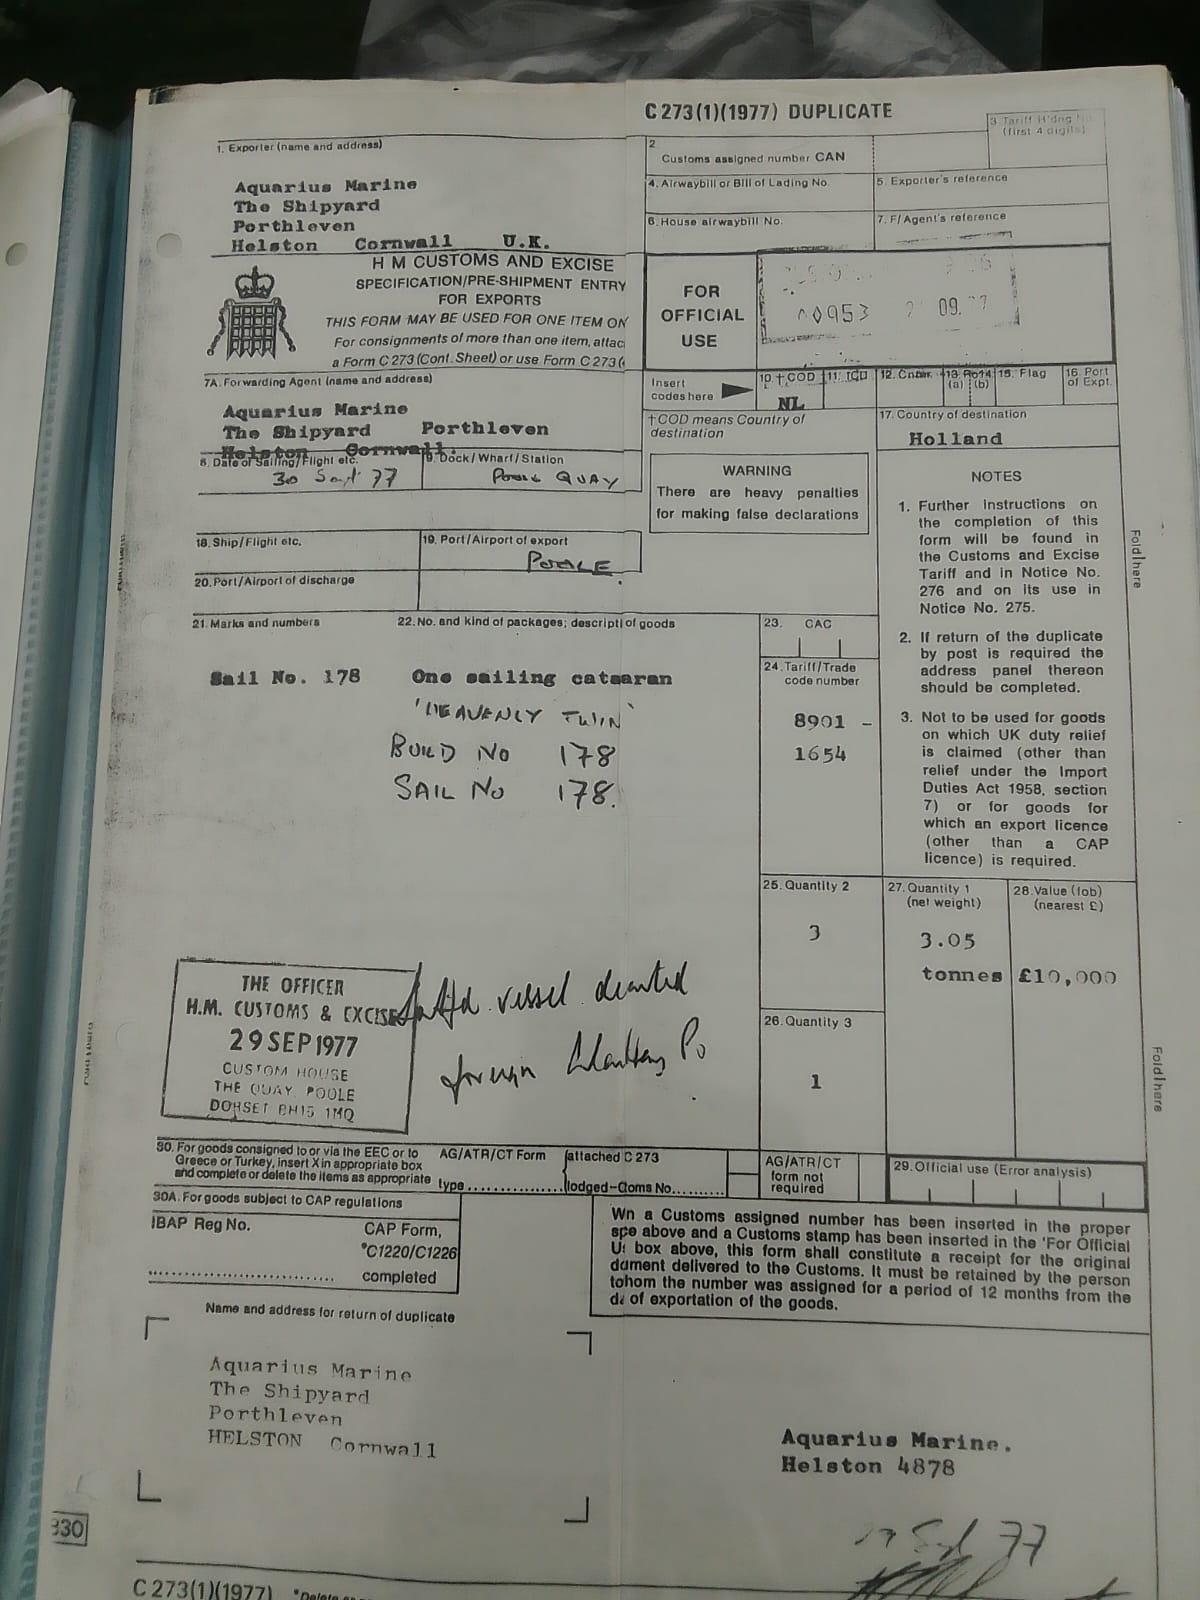 C 273 (1) (1977) DUPLICATE
1. Exporter (name and address)
Aquarius Marine
The Shipyard
Porthleven
Helston Cornwall U.K.
2
Customs assigned number CAN
3 Tariff H'dng No
(first 4 digits)
4. Airwaybill or Bill of Lading No.
5. Exporter's reference
6. House airwaybill No.
7. F/Agent's reference
H M CUSTOMS AND EXCISE
SPECIFICATION/PRE-SHIPMENT ENTRY
FOR EXPORTS
THIS FORM MAY BE USED FOR ONE ITEM ON
For consignments of more than one item, attac
a Form C 273 (Cont. Sheet) or use Form C 273 (
FOR
OFFICIAL
USE
09.
7A. Forwarding Agent (name and address)
Aquarius Marine
The Shipyard Porthleven
Helston Cornwall.
Insert
codes here
10. † COD
NL
11. TCD
12. Cntnr.
13. Ro14.
(a) (b)
15. Flag
16. Port
of Expt.
†COD means Country of
destination
17. Country of destination
Holland
8. Date of Sailing/Flight etc.
30 Sept 77
9. Dock/Wharf/Station
POOLE QUAY
WARNING
There are heavy penalties
for making false declarations
18. Ship/Flight etc.
19. Port/Airport of export
POOLE.
20. Port/Airport of discharge
NOTES
1. Further instructions on
the completion of this
form will be found in
the Customs and Excise
Tariff and in Notice No.
276 and on its use in
Notice No. 275.
2. If return of the duplicate
by post is required the
address panel thereon
should be completed.
3. Not to be used for goods
on which UK duty relief
is claimed (other than
relief under the Import
Duties Act 1958, section
7) or for goods for
which an export licence
(other than a CAP
licence) is required.
Fold here
21. Marks and numbers
22. No. and kind of packages; descripti of goods
23. CAC
Sail No. 178 One sailing catmaran
'HEAVENLY TWIN'
BUILD No 178
SAIL No 178.
24. Tariff/Trade
code number
8901 -
1654
25. Quantity 2
3
27. Quantity 1
(net weight)
3.05
tonnes
28. Value (fob)
(nearest £)
£10,000
26. Quantity 3
1
THE OFFICER
H.M. CUSTOMS & EXCISE
29 SEP 1977
CUSTOM HOUSE
THE QUAY, POOLE
DORSET BH15 1MQ
vessel
foreign
Fold here
30. For goods consigned to or via the EEC or to
Greece or Turkey, insert X in appropriate box
and complete or delete the items as appropriate
AG/ATR/CT Form
type
attached C 273
lodged-Cloms No.
AG/ATR/CT
form not
required
29. Official use (Error analysis)
30A. For goods subject to CAP regulations
IBAP Reg No.
CAP Form,
*C1220/C1226
completed
Wn a Customs assigned number has been inserted in the proper
spe above and a Customs stamp has been inserted in the 'For Official
Us box above, this form shall constitute a receipt for the original
dument delivered to the Customs. It must be retained by the person
tohom the number was assigned for a period of 12 months from the
da of exportation of the goods.
Name and address for return of duplicate
Aquarius Marine
The Shipyard
Porthleven
HELSTON Cornwall
Aquarius Marine.
Helston 4878
77
330
C 273 (1) (1977)